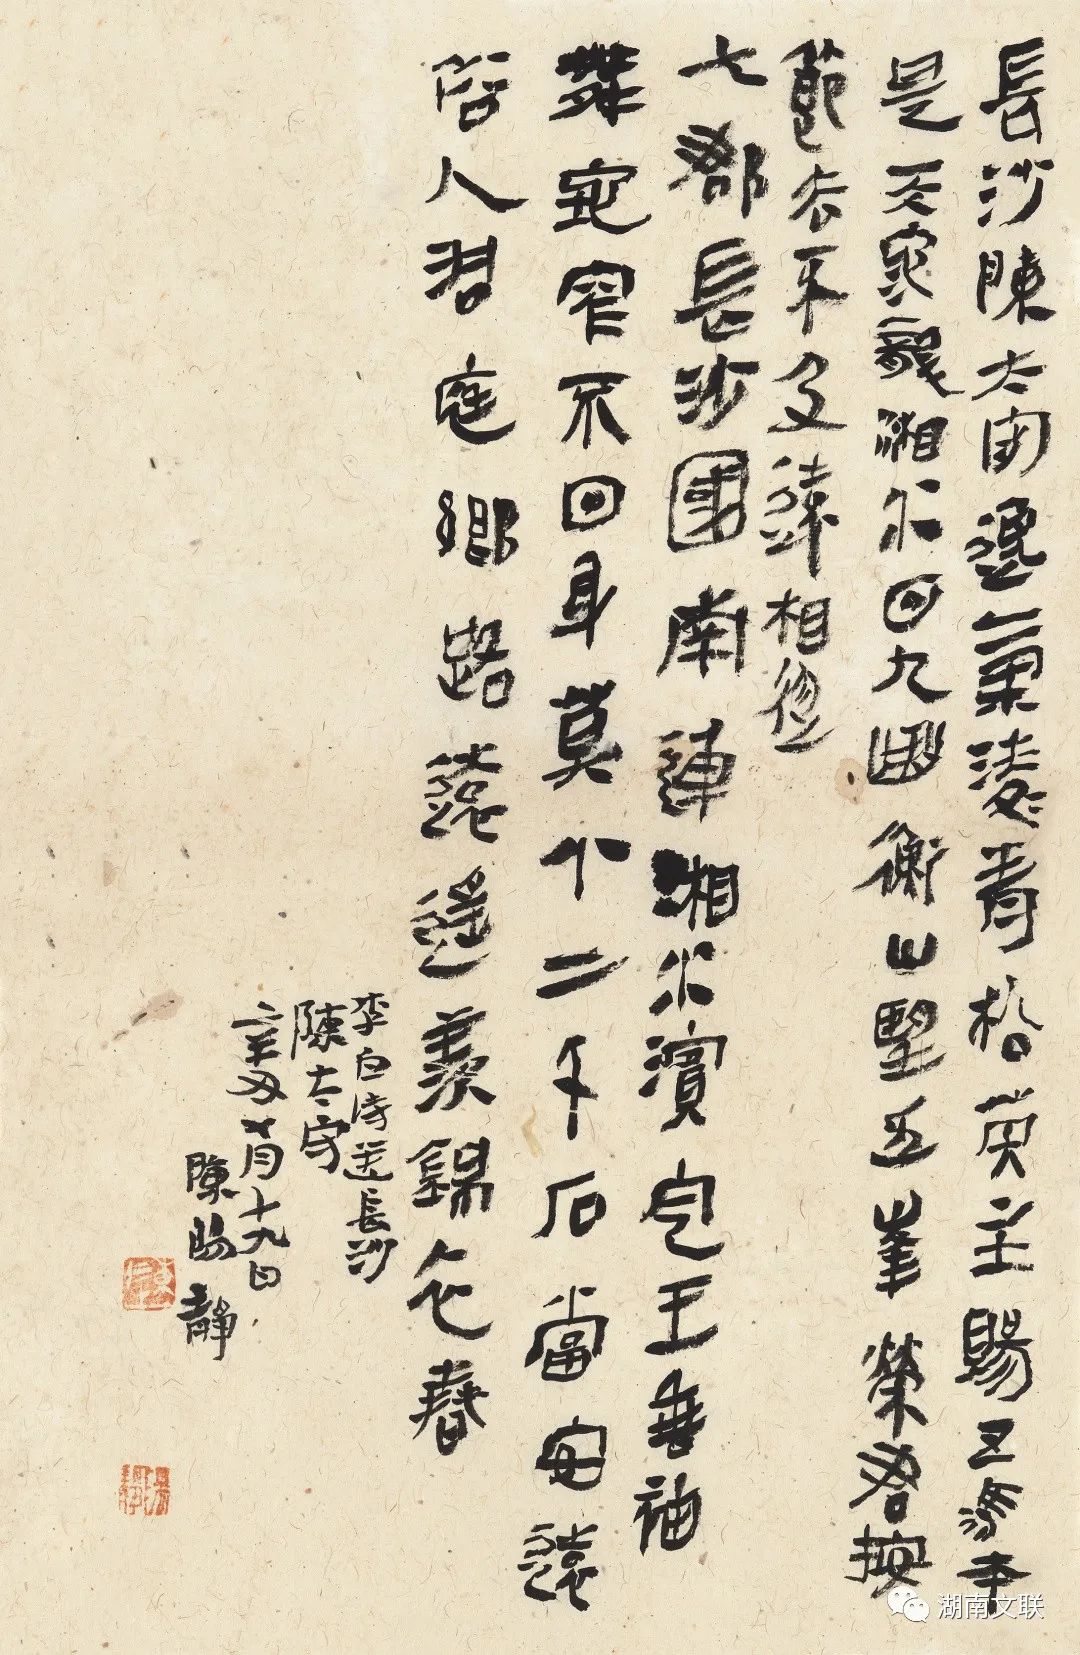 長沙陳太守逸氣凌青松英主賜玉馬本
是天龍湘水回九曲衡山望五峯榮君按
節去不及遠相從
七郡長沙國南連湘水濱定王垂袖
舞窄不回身莫小二千石當安遠
俗人洞庭鄉路遠遙羨錦衣春
李白詩送長沙
陳太守
辛丑月十九日
陳陽靜
湖南文联